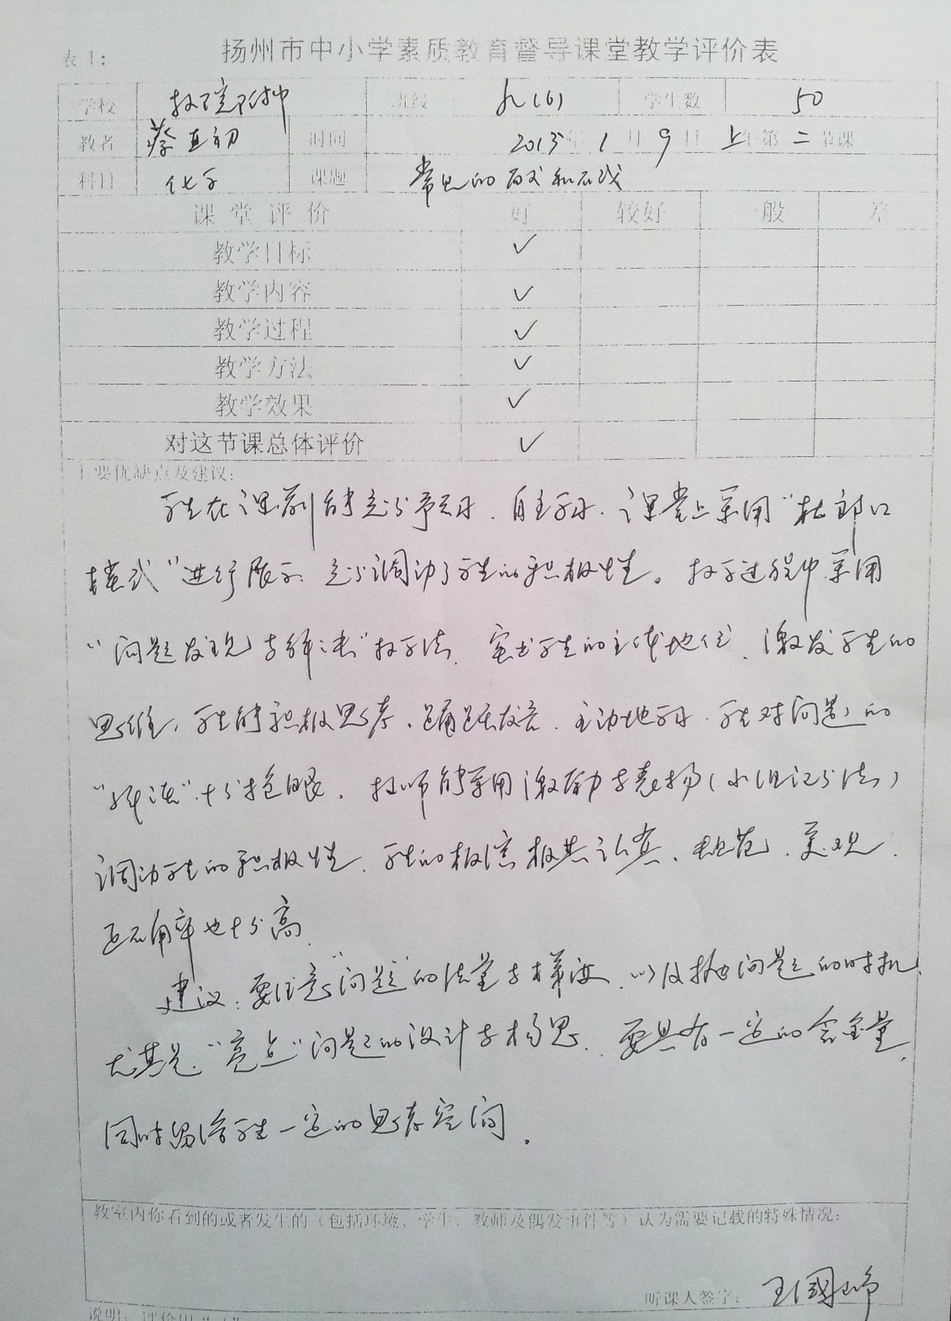 表1:
扬州市中小学素质教育督导课堂教学评价表
学校 教院附中 班级 九(6) 学生数 50
教者 蔡 初 时间 2013年 1 月 9 日 上 午第 二 节课
科目 化学 课题 常见的酸和碱
课堂评价 好 较好 一般 差
教学目标 ✓
教学内容 ✓
教学过程 ✓
教学方法 ✓
教学效果 ✓
对这节课总体评价 ✓
主要优缺点及建议:
学生在课前能充分预习、自主学习. 课堂上采用"杜郎口
模式"进行展示, 充分调动了学生的积极性。教学过程中采用
"问题发现与解决"教学法, 突出学生的主体地位、激发学生的
思维, 学生能积极思考、踊跃发言、主动地学习. 学生对问题的
十分抢眼. 教师能采用激励与表扬(小组记分法)
调动学生的积极性, 学生的板演极其认真、规范、美观,
正确率也十分高.
建议: 要注意"问题"的 以及 问题的时机,
尤其是"亮点"问题的设计与构思, 要具有一定的含金量,
同时留给学生一定的思考空间.
教室内你看到的或者发生的(包括环境、学生、教师及偶发事件等)认为需要记载的特殊情况:
听课人签字: 王国
说明: 评价用